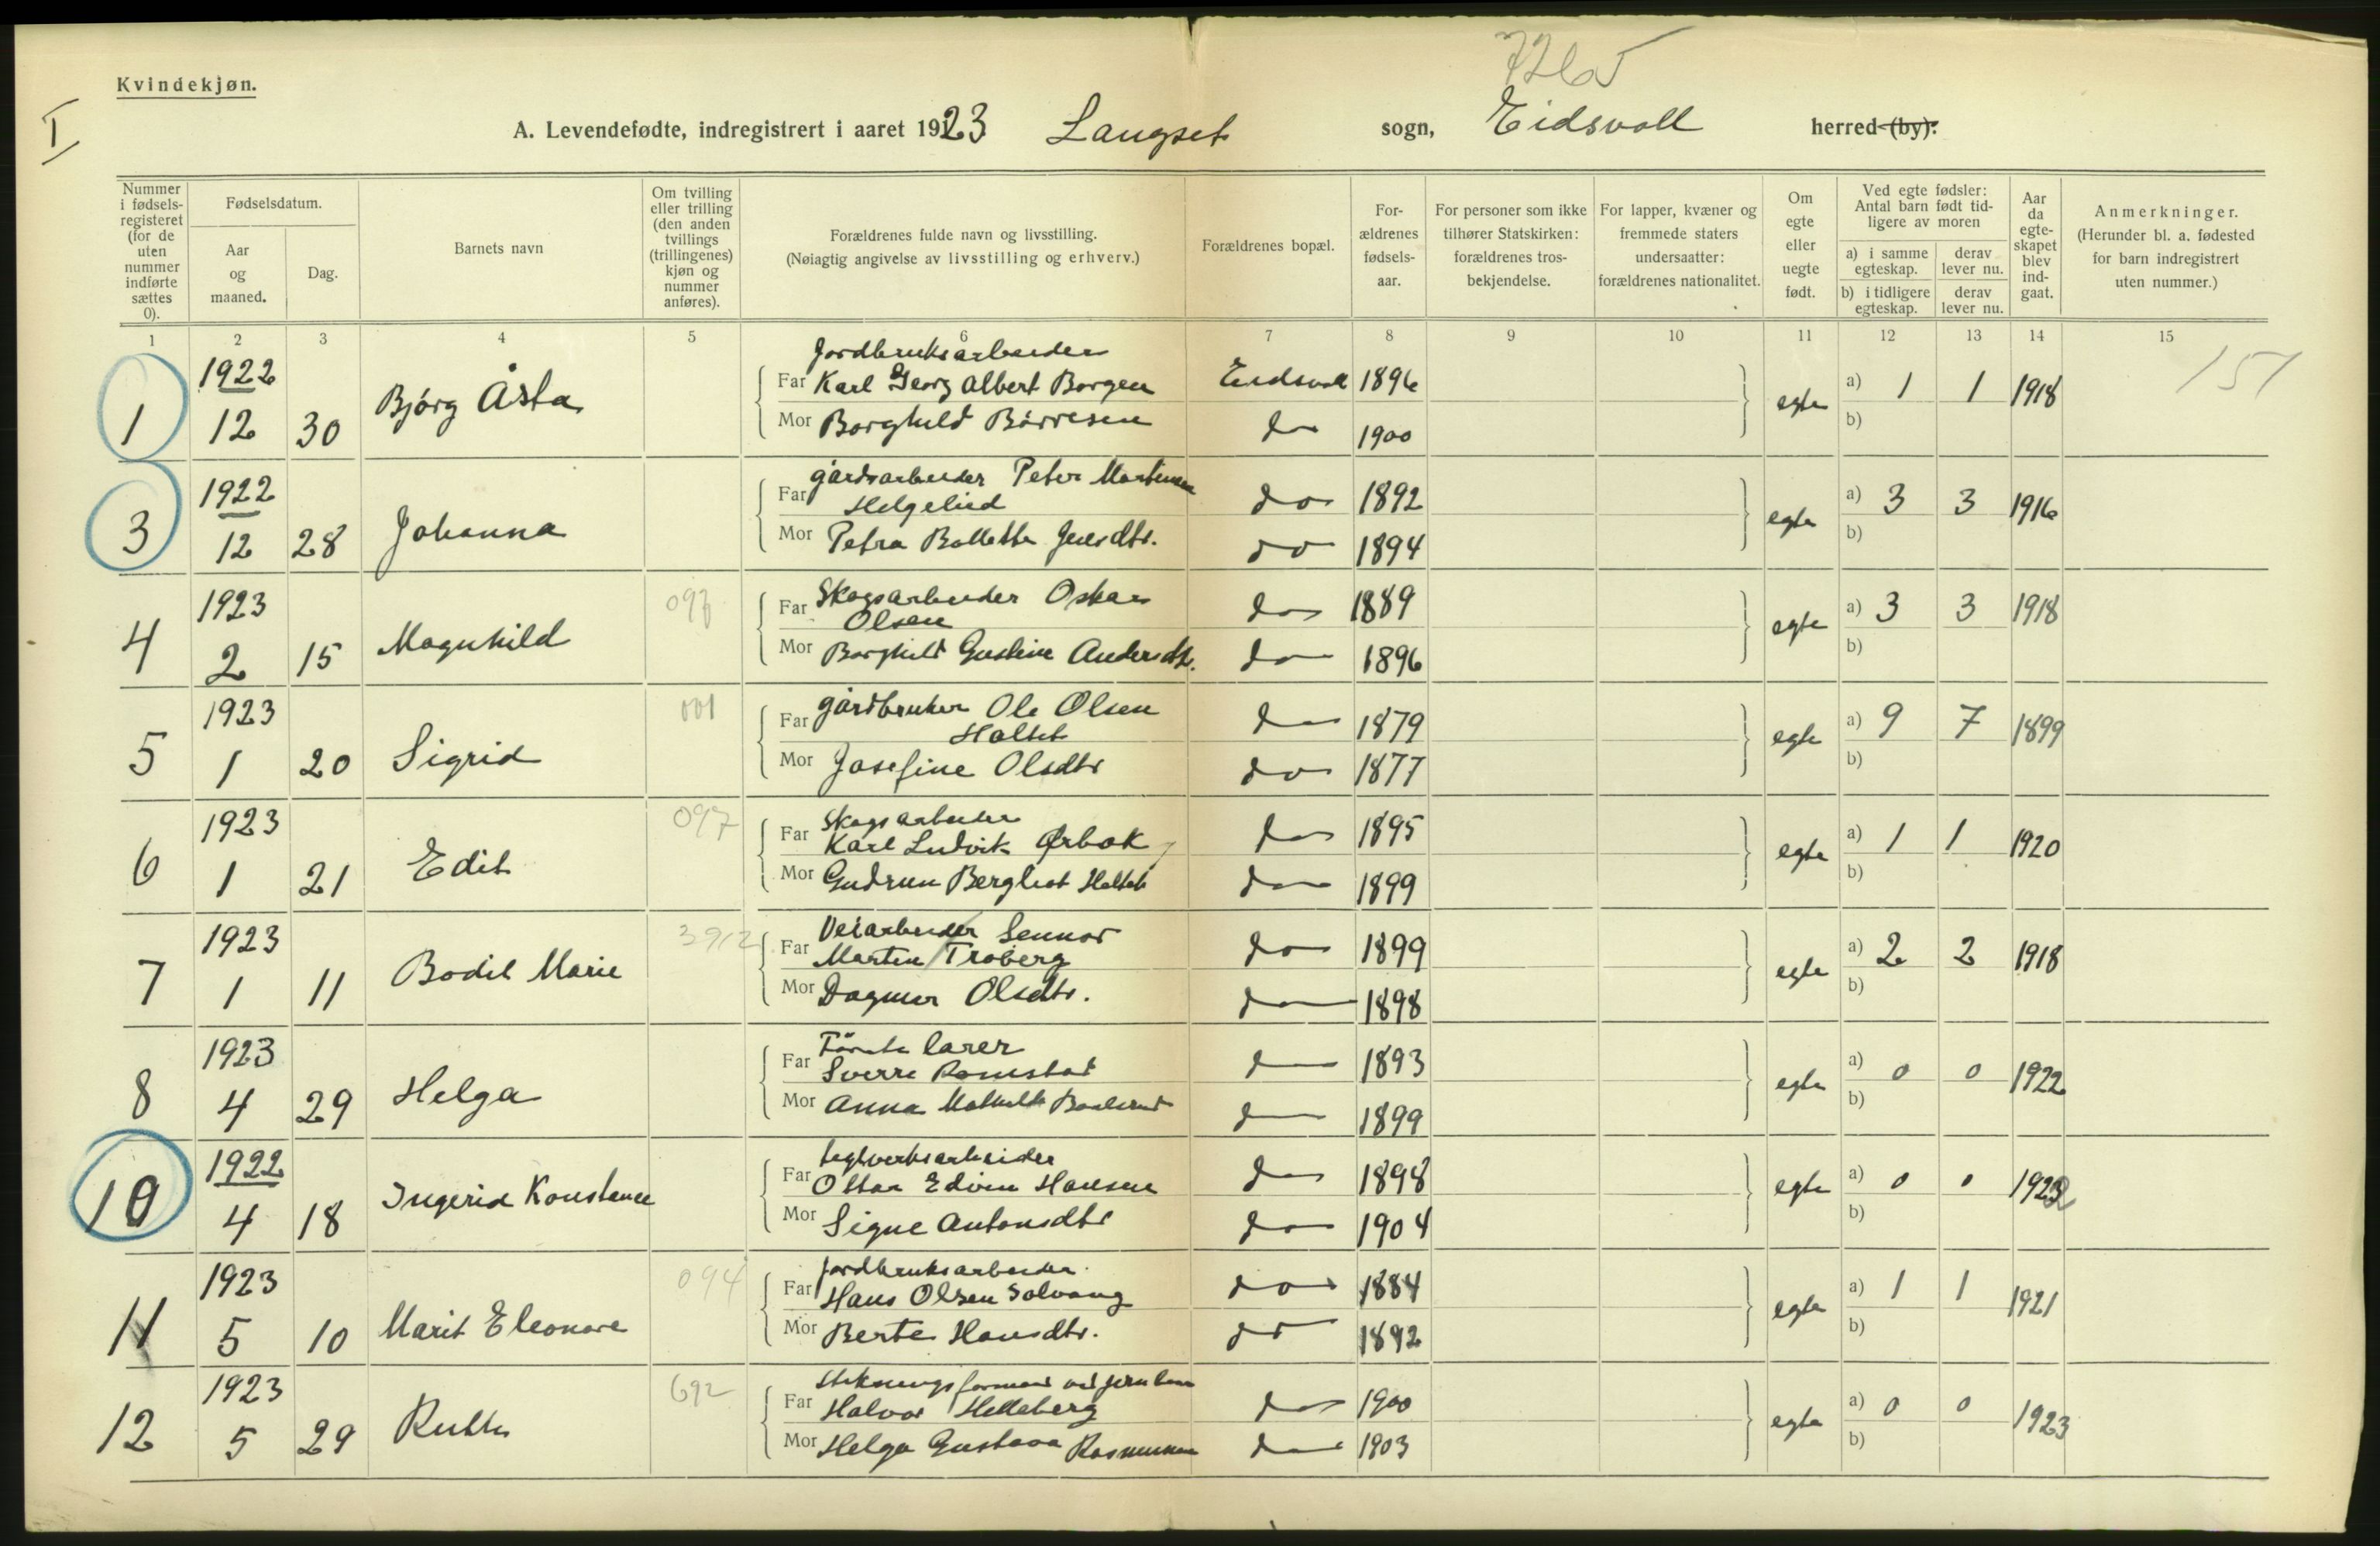 Kvindekjøn.
I
7265
A. Levendefødte, indregistrert i aaret 1923 Langset sogn, Eidsvoll herred (by):
Nummer i fødsels-registeret (for de uten nummer indførte sættes 0).
Fødselsdatum.
Aar og maaned.
Dag.
Barnets navn
Om tvilling eller trilling (den anden tvillings (trillingenes) kjøn og nummer anføres).
Forældrenes fulde navn og livsstilling.
(Nøiagtig angivelse av livsstilling og erhverv.)
Forældrenes bopæl.
For-ældrenes fødsels-aar.
For personer som ikke tilhører Statskirken: forældrenes tros-bekjendelse.
For lapper, kvæner og fremmede staters undersaatter: forældrenes nationalitet.
Om egte eller uegte født.
Ved egte fødsler: Antal barn født tid-ligere av moren
a) i samme egteskap. derav lever nu.
b) i tidligere egteskap. derav lever nu.
Aar da egte-skapet blev ind-gaat.
Anmerkninger.
(Herunder bl. a. fødested for barn indregistrert uten nummer.)
1 2 3 4 5 6 7 8 9 10 11 12 13 14 15
151
1922 Jordbruksarbeider
Far Karl Georg Albert Borgen Eidsvoll 1896
1 12 30 Bjørg Åsta egte a) 1 1 1918
Mor Borghild Børresen do 1900 b)
1922 gårdsarbeider Peter Martinsen
Far Helgelied do 1892
3 12 28 Johanna egte a) 3 3 1916
Mor Petra Bollette Jensdtr. do 1894 b)
1923 097 Skogsarbeider Oskar
Far Olsen do 1889
4 2 15 Magnhild egte a) 3 3 1918
Mor Borghild Gustine Andersdtr. do 1896 b)
1923 001 gårdbruker Ole Olsen
Far Holtet do 1879
5 1 20 Sigrid egte a) 9 7 1899
Mor Josefine Olsdtr do 1877 b)
1923 097 Skogsarbeider
Far Karl Ludvik Ørbak do 1895
6 1 21 Edit egte a) 1 1 1920
Mor Gudrun Bergliot Holtet do 1899 b)
1923 3912 Veiarbeider Sennar
Far Martin Troberg do 1899
7 1 11 Bodil Marie egte a) 2 2 1918
Mor Dagmar Olsdtr. do 1898 b)
1923 Förste lærer
Far Sverre Romstad do 1893
8 4 29 Helga egte a) 0 0 1922
Mor Anna Mathilde do 1899 b)
1922 teglverksarbeider
Far Ottar Edvin Hansen do 1898
10 4 18 Ingerid Konstance egte a) 0 0 1922
Mor Signe Antonsdtr do 1904 b)
1923 094 jordbruksarbeider
Far Hans Olsen Solvang do 1884
11 5 10 Marit Eleonore egte a) 1 1 1921
Mor Berte Hansdtr. do 1892 b)
1923 692 stikningsformand ved jernbanen
Far Halvor Helleberg do 1900
12 5 29 Ruth egte a) 0 0 1923
Mor Helga Gustava Rasmussen do 1903 b)